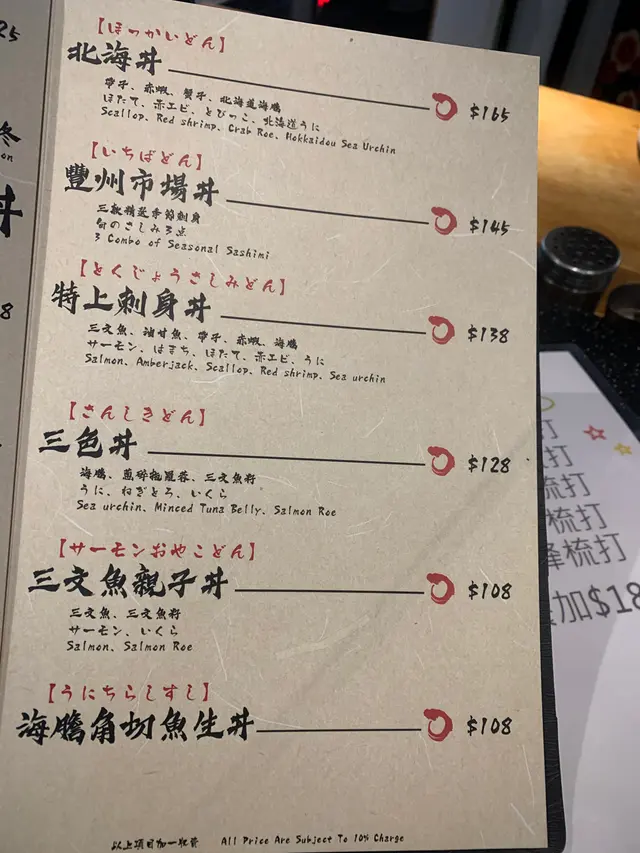 【ほっかいどん】
北海丼 $165
帶子、赤蝦、蟹子、北海道海膽
ほたて、赤エビ、とびっこ、北海道うに
Scallop、Red shrimp、Crab Roe、Hokkaidou Sea Urchin
【いちばどん】
豐州市場丼 $145
三款精選季節刺身
旬のさしみ3点
3 Combo of Seasonal Sashimi
【とくじょうさしみどん】
特上刺身丼 $138
三文魚、油甘魚、帶子、赤蝦、海膽
サーモン、はまち、ほたて、赤エビ、うに
Salmon、Amberjack、Scallop、Red shrimp、Sea urchin
【さんしきどん】
三色丼 $128
海膽、蔥碎拖羅蓉、三文魚籽
うに、ねぎとろ、いくら
Sea urchin、Minced Tuna Belly、Salmon Roe
【サーモンおやこどん】
三文魚親子丼 $108
三文魚、三文魚籽
サーモン、いくら
Salmon、Salmon Roe
【うにちらしすし】
海膽角切魚生丼 $108
以上項目加一收費 All Price Are Subject To 10% Charge
25
冬
on
丼
8
打
打
梳打
梳打
梳打
加$18